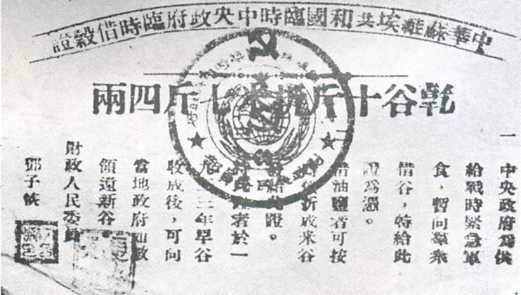 中華蘇維埃共和國臨時中央政府臨時借穀證
乾谷十斤折米七斤四兩
一
中央政府爲供
給戰時緊急軍
食，暫向羣衆
借谷，特給此
證爲憑。
油鹽者可按
折成米谷
給此證。
此證者於一
三三年早谷
收成後，可向
當地政府如數
領還新谷
財政人民委員
鄧子恢